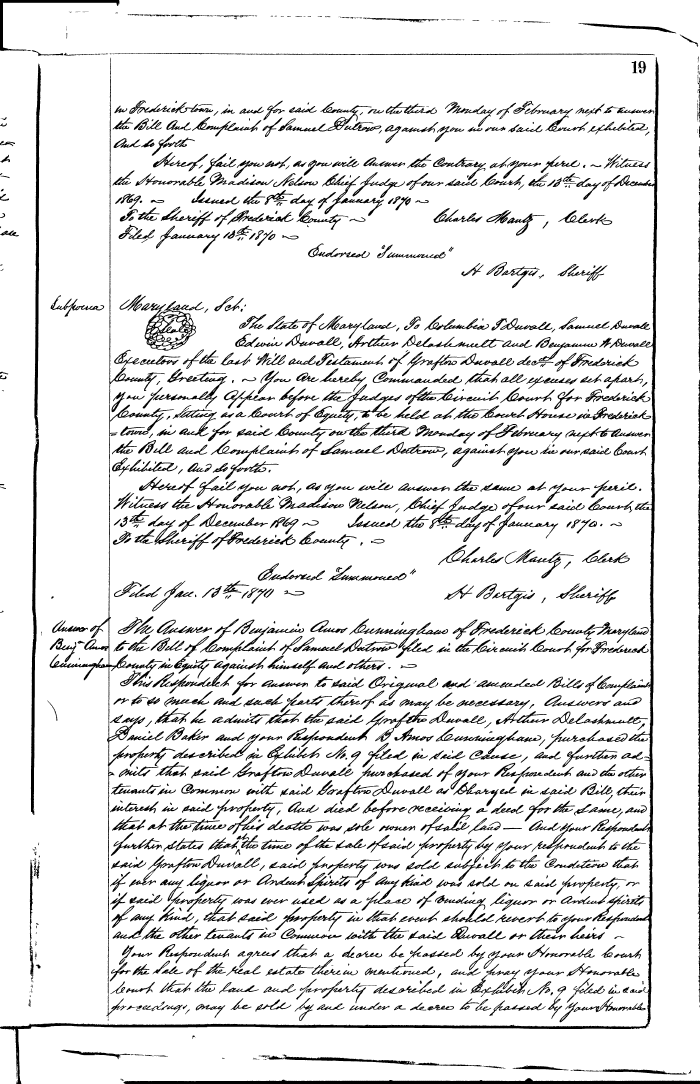 19
in Frederick town, in and for said County, on the third Monday of February next to answer
the Bill and Complaint of Samuel Dutrow, against you in our said Court exhibited,
and so forth
Hereof, fail you not, as you will answer the Contrary, at your peril. ~ Witness
the Honorable Madison Nelson Chief Judge of our said Court, the 13th day of December
1869. ~ Issued the 8th day of January 1870 ~
To the Sheriff of Frederick County ~ Charles Mantz, Clerk
Filed January 13th 1870 ~
Endorsed "Summoned"
H Bartgis, Sheriff
Subpoena Maryland, Sct:
Seal The State of Maryland, To Columbia T Duvall, Samuel Duvall
Edwin Duvall, Arthur Delashmutt and Benjamin A. Duvall
Executors of the last Will and Testament of Grafton Duvall decd. of Frederick
County, Greeting. ~ You Are hereby Commanded that all excuses set apart,
you personally Appear before the Judges of the Circuit Court for Frederick
County, Sitting as a Court of Equity, to be held at the Court House in Frederick
=town, in and for said County on the third Monday of February next to answer
the Bill and Complaint of Samuel Dutrow, against you in our said Court
Exhibited, And so forth.
Hereof fail you not, as you will answer the same at your peril.
Witness the Honorable Madison Nelson, Chief Judge of our said Court, the
13th day of December 1869 ~ Issued the 8th day of January 1870. ~
To the Sheriff of Frederick County. ~
Charles Mantz, Clerk
Endorsed "Summoned"
Filed Jan. 13th 1870 ~ H Bartgis, Sheriff
Answer of
Benj Amos
Cunningham
The Answer of Benjamin Amos Cunningham of Frederick County Maryland
to the Bill of Complaint of Samuel Dutrow filed in the Circuit Court for Frederick
County in Equity against himself and others. ~
This Respondent for answer to said Original and amended Bills of Complaint
or to so much and such parts thereof as may be necessary, Answers and
says, that he admits that the said Grafton Duvall, Arthur Delashmutt,
Daniel Baker and your Respondent B Amos Cunningham, purchased the
property described in Exhibit No. 9 filed in said Cause, and further ad-
-mits that said Grafton Duvall purchased of your Respondent and the other
tenants in Common with said Grafton Duvall as Charged in said Bill, their
interest in said property, And died before receiving a deed for the same, and
that at the time of his death was sole owner of said land — And your Respondent
further states that at the time of the sale of said property by your respondent to the
said Grafton Duvall, said property was sold subject to the Condition that
if ever any liquor or Ardent Spirits of Any kind was sold on said property, or
if said property was ever used as a place of vending liquor or Ardent spirits
of any kind, that said property in that event should revert to your Respondent
and the other tenants in Common with the said Duvall or their heirs ~
Your Respondent agrees that a decree be passed by your Honorable Court
for the sale of the real estate therein mentioned, and pray your Honorable
Court that the land and property described in Exhibit No. 9 filed in said
proceedings, may be sold by and under a decree to be passed by your Honorable